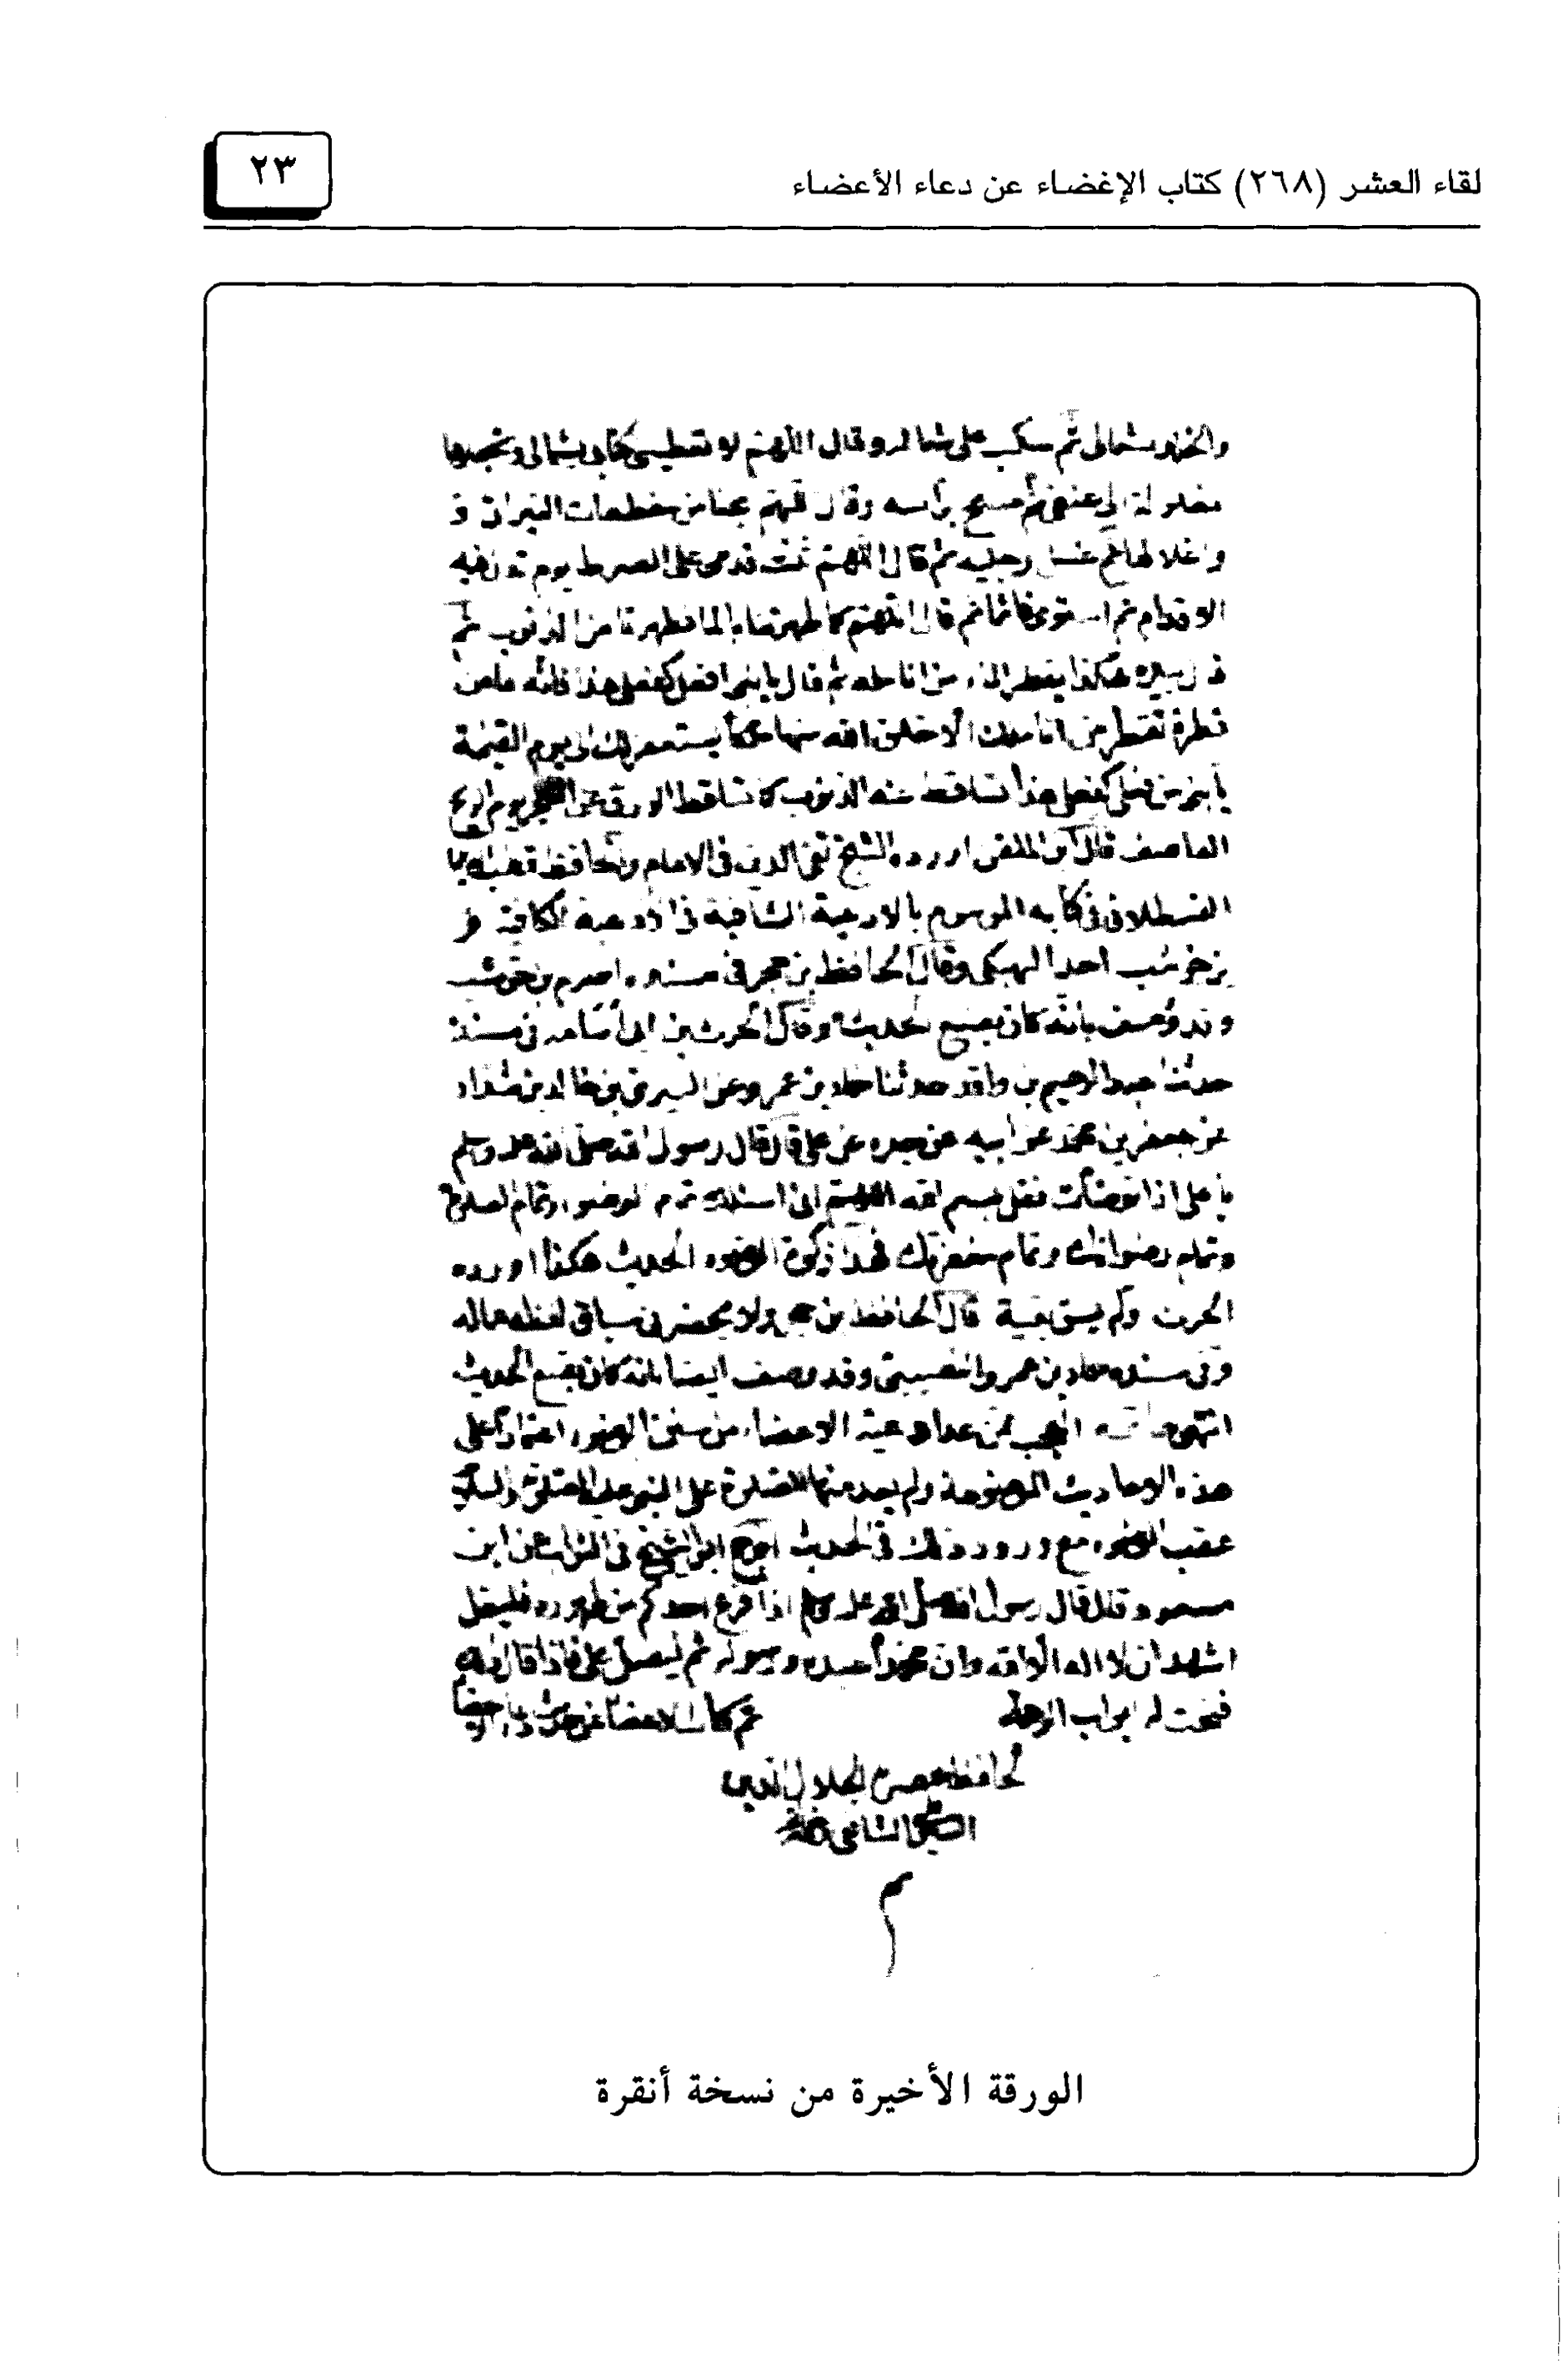 لقاء العشر (٢٦٨) كتاب الإغضاء عن دعاء الأعضاء
٢٣
ثم سكب على شماله وقال اللهم لا تعطينى كتابى بشمالى وتجعلها
مغلولة الى عنقى ثم مسح برأسه وقال اللهم نجنا من مقطعات النيران و
واغلالها ثم غسل رجليه ثم قال اللهم ثبت قدمى على الصراط يوم تزل فيه
الاقدام ثم استوى قائما ثم قال اللهم كما طهرتنا بالما فطهرنا من الذنوب ثم
قال بيده هكذا يقطر الماء من انامله ثم قال يا بنى افعل كفعلى هذا فانه ما من
قطرة تقطر من اناملك الا خلق الله منها ملكا يستغفر لك الى يوم القيمة
يا بنى من فعل كفعلى هذا تساقط عنه الذنوب كما تساقط الورق عن الشجر يوم الريح
العاصف قال ابن الملقن اورده الشيخ تقى الدين فى الامام والحافظ قطب الدين
القسطلانى فى كتابه الموسوم بالادعية الشافية فى الادعية الكافية
احد وقال الحافظ بن حجر فى سنده اصرم بن حوشب
وقد وصف بانه كان يضع الحديث وقال الحرث بن ابى أسامه فى مسنده
حدثنا عبد الرحيم بن واقد حدثنا حماد بن عمرو عن السرى بن خالد بن شداد
عن جعفر بن محمد عن ابيه عن جده عن على قال قال رسول الله صلى الله عليه وسلم
يا على اذا توضأت فقل بسم الله اللهم انى اسئلك تمام الوضوء وتمام الصلوة
وتمام رضوانك وتمام مغفرتك فهذا زكوة الوضوء الحديث هكذا اورده
الحرث ولم يسق بقية قال الحافظ بن حجر ولا يحضرنى سياق لفظه حاله
وفى سنده حماد بن عمرو النصيبى وقد وصف ايضا بانه كان يضع الحديث
انتهى العجب ممن عد ادعية الاعضاء من سنن الوضوء اعتمادا على
هذه الاحاديث الموضوعة ولم يعد منها الصلوة على النبى عليه الصلوة والسلام
عقب الوضوء مع ورود ذلك فى الحديث اخرج ابو الشيخ فى الثواب عن ابن
مسعود قال قال رسول الله صلى الله عليه وسلم اذا فرغ احدكم من طهوره فليقل
اشهد ان لا اله الا الله وان محمدا عبده ورسوله ثم ليصل على فاذا قال ذلك
فتحت له ابواب الرحمة تم كتاب الاغضا عن دعاء الاعضا
لحافظ عصره الجلال الدين
الشافعى
م
الورقة الأخيرة من نسخة أنقرة